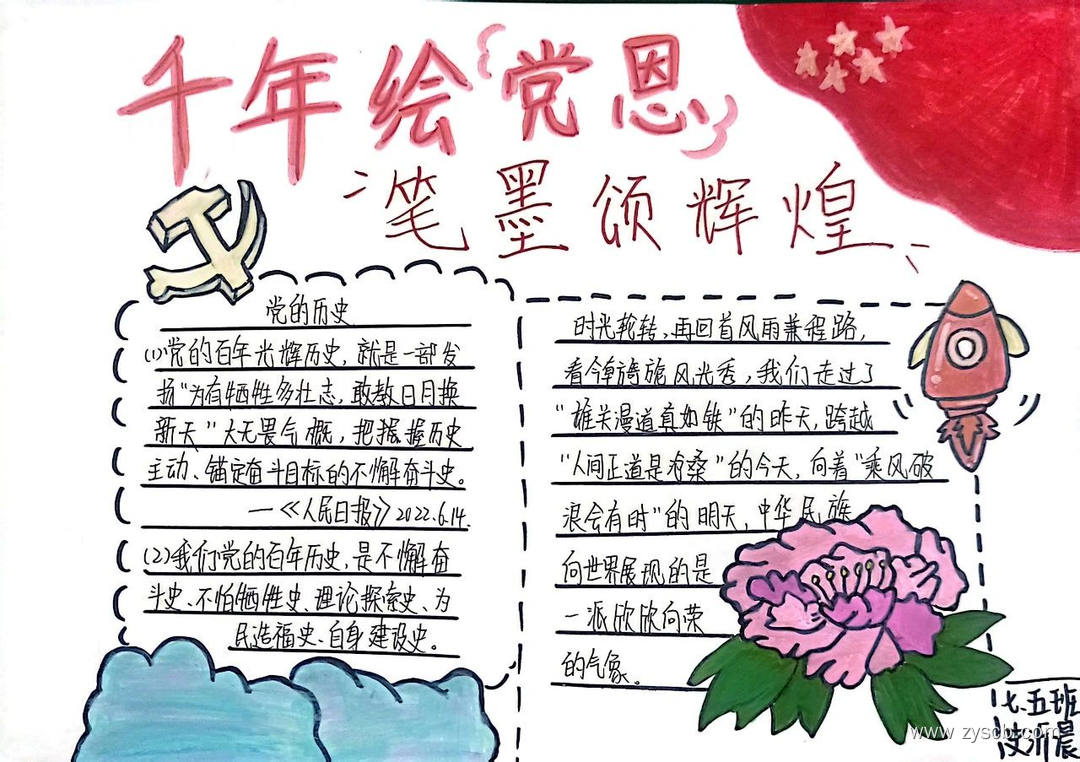 千年绘党恩
笔墨颂辉煌
党的历史
(1)党的百年光辉历史，就是一部发
扬"为有牺牲多壮志，敢教日月换
新天"大无畏气概，把握握历史
主动、锚定奋斗目标的不懈奋斗史。
—《人民日报》2022.6.14
(2)我们党的百年历史，是不懈奋
斗史、不怕牺牲史、理论探索史、为
民造福史、自身建设史。
时光轮转，再回首风雨兼程路，
看今朝旖旎风光秀，我们走过了
"雄关漫道真如铁"的昨天，跨越
"人间正道是沧桑"的今天，向着"乘风破
浪会有时"的明天，中华民族
向世界展现的是
一派欣欣向荣
的气象。
七.五班
汶沂晨
www.zyscbl.com